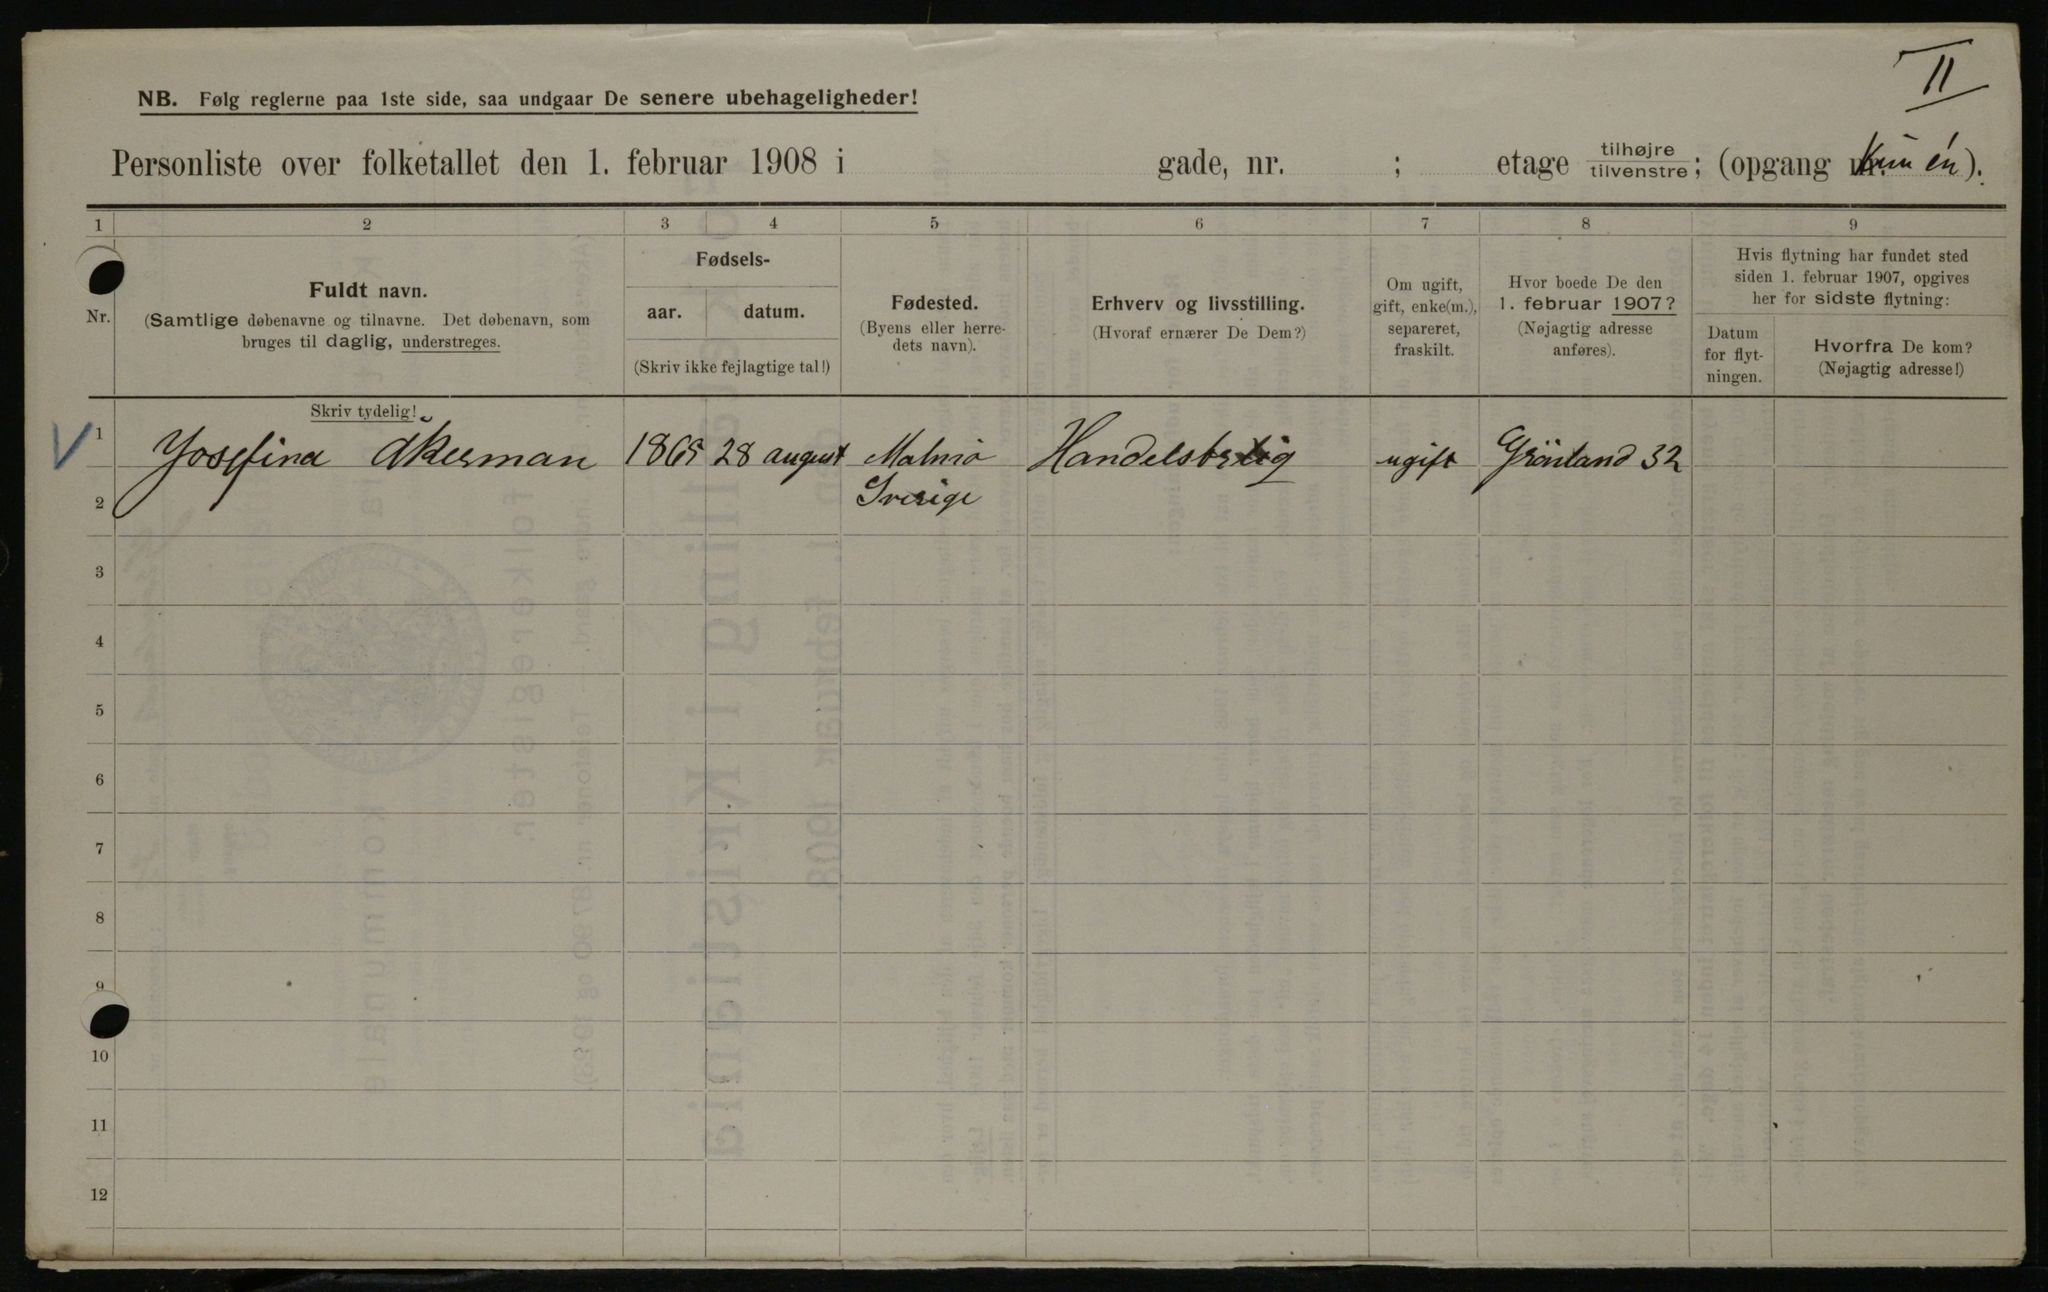 II
NB. Følg reglerne paa 1ste side, saa undgaar De senere ubehageligheder!
Personliste over folketallet den 1. februar 1908 i gade, nr. ; etage tilhøjre tilvenstre; (opgang nr. Kun én).
1 2 3 4 5 6 7 8 9
Nr.
Fuldt navn.
(Samtlige døbenavne og tilnavne. Det døbenavn, som
bruges til daglig, understreges.
Skriv tydelig!
Fødsels-
aar. datum.
(Skriv ikke fejlagtige tal!)
Fødested.
(Byens eller herre-
dets navn).
Erhverv og livsstilling.
(Hvoraf ernærer De Dem?)
Om ugift,
gift, enke(m.),
separeret,
fraskilt.
Hvor boede De den
1. februar 1907?
(Nøjagtig adresse
anføres).
Hvis flytning har fundet sted
siden 1. februar 1907, opgives
her for sidste flytning:
Datum
for flyt-
ningen.
Hvorfra De kom?
(Nøjagtig adresse!)
1 Josefina Åkerman 1865 28 august Malmö ugift Grönland 32
2 Sverige
3
4
5
6
7
8
9
10
11
12